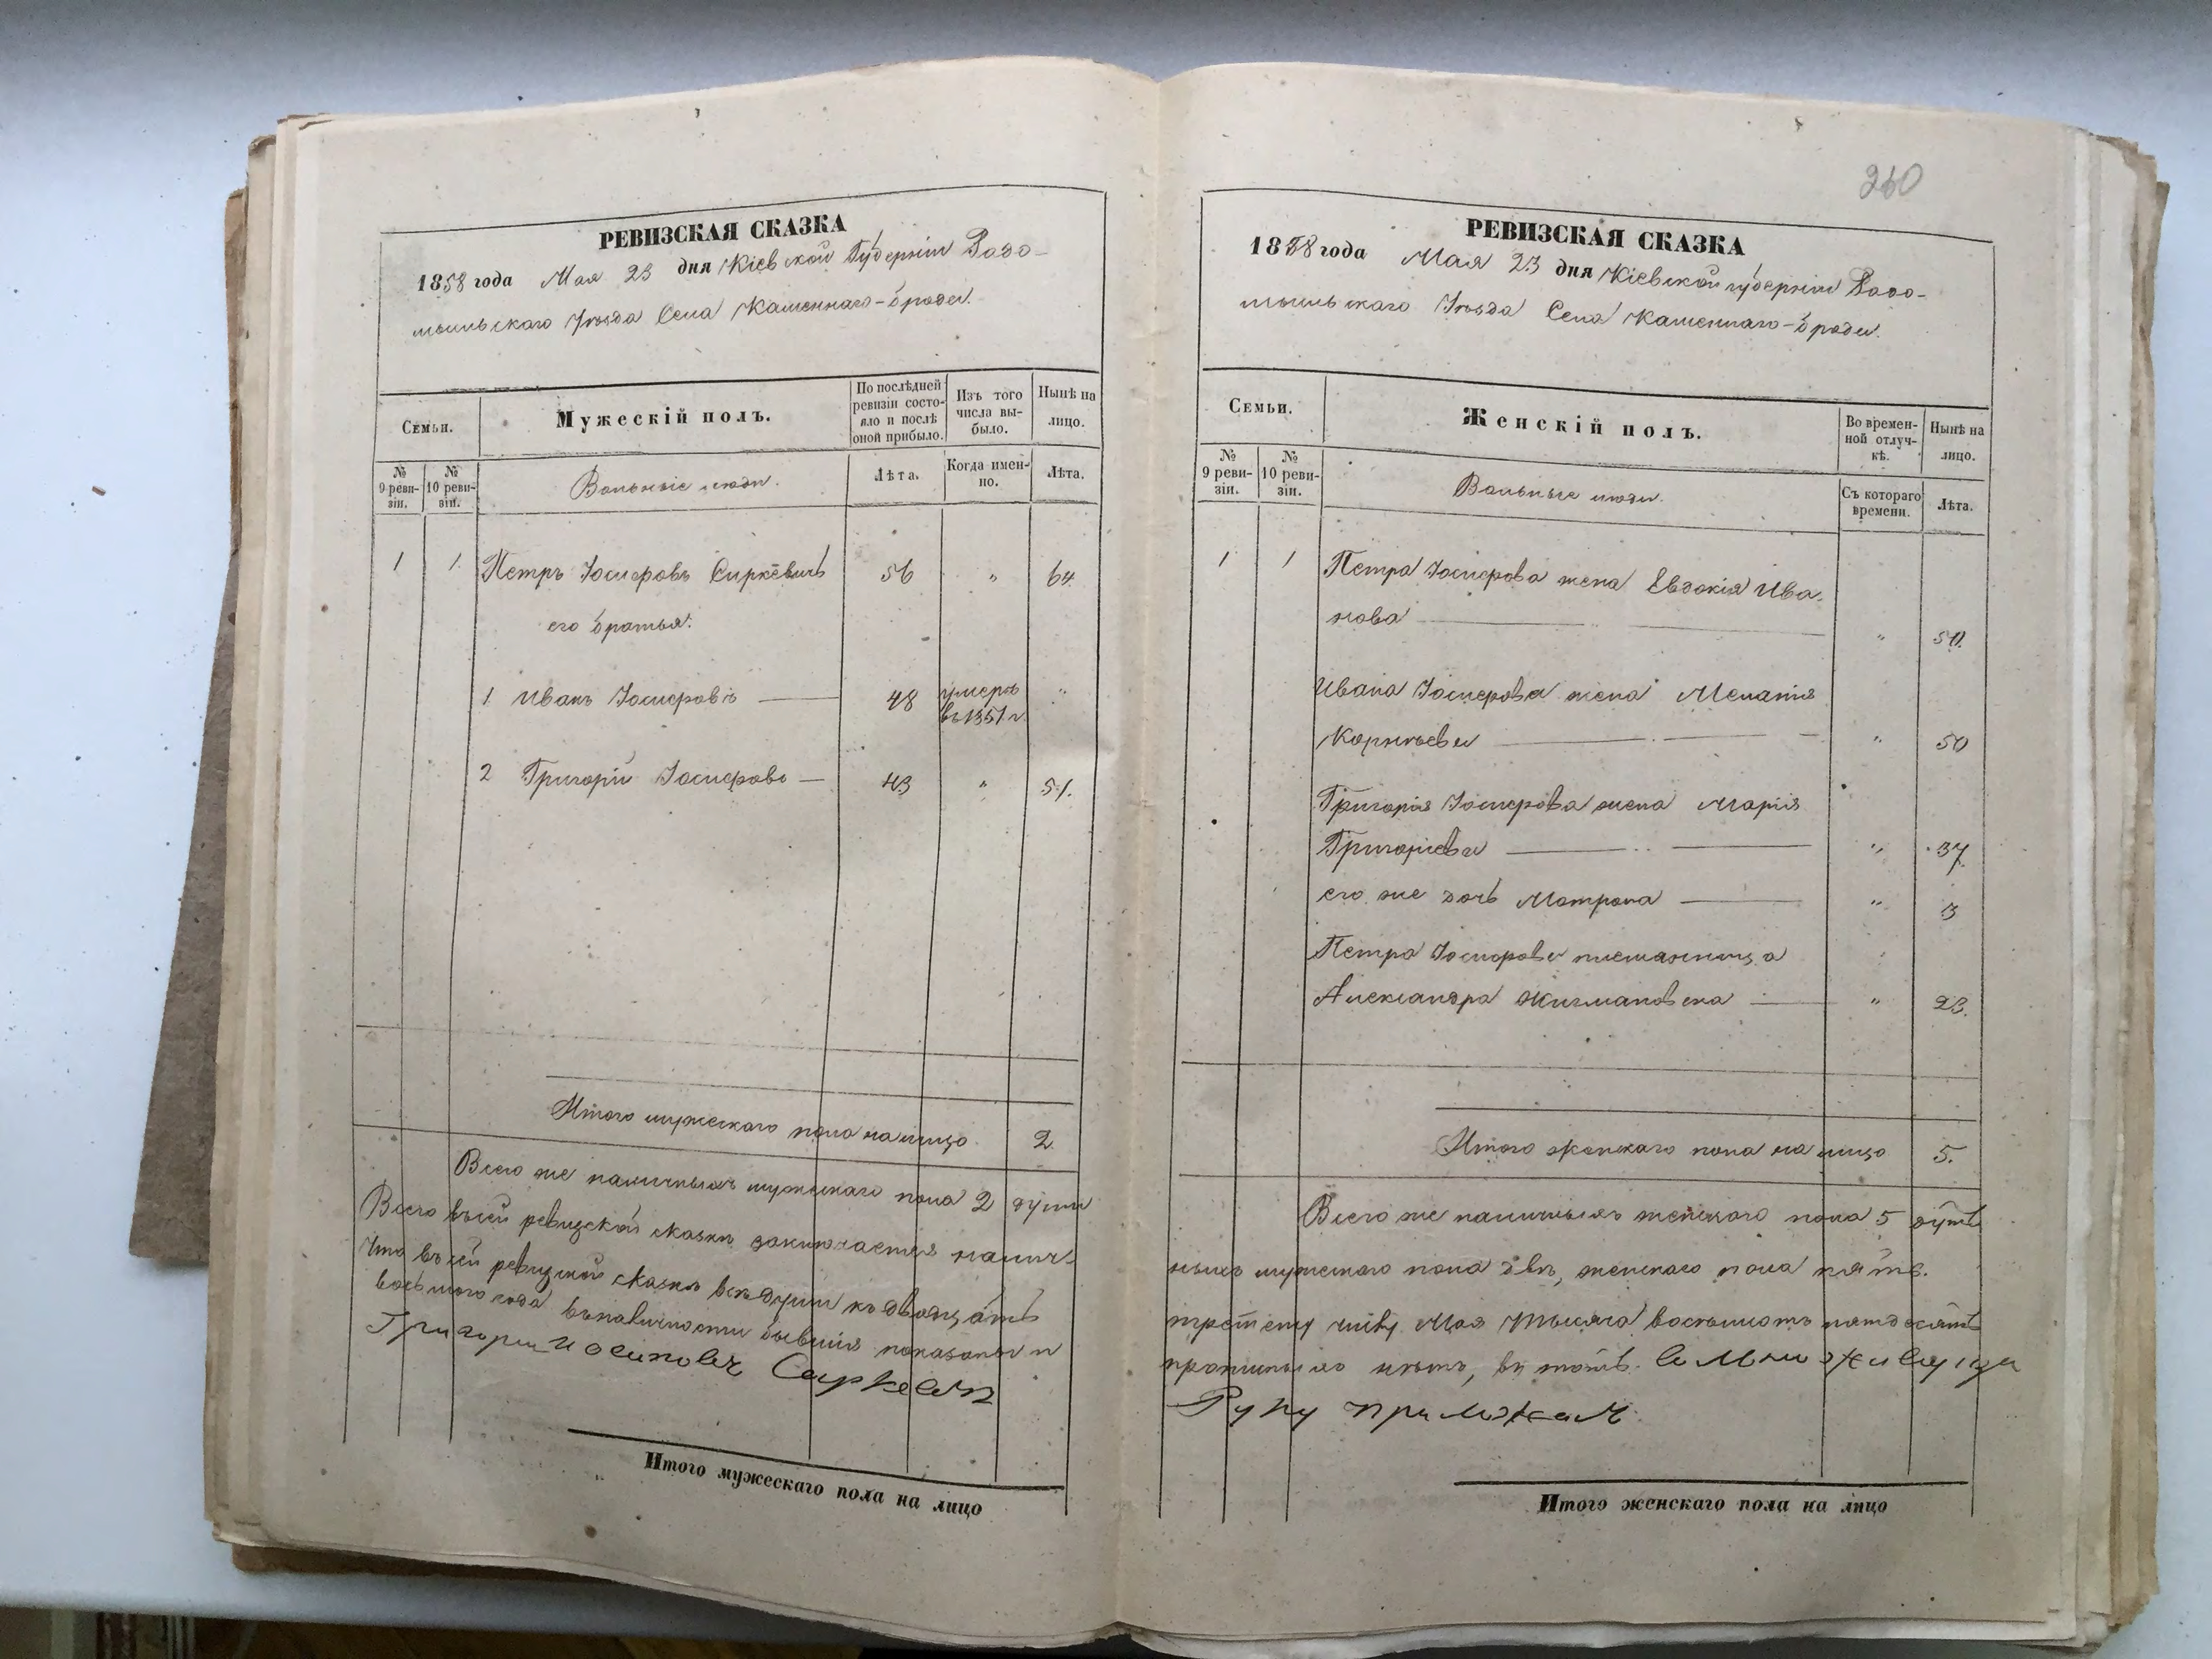 260
РЕВИЗСКАЯ СКАЗКА
1858 года Мая 23 дня Кіевской Губерніи Радо-
мысльскаго Уѣзда Села Каменнаго-брода.
Семьи.
Мужескій полъ.
По послѣдней ревизіи состояло и послѣ оной прибыло.
Изъ того числа выбыло.
Нынѣ на лицо.
№ 9 ревизіи.
№ 10 ревизіи.
Вольные люди.
Лѣта.
Когда именно.
Лѣта.
1 1 Петръ Іосифовъ Сиркевичь 56 " 64.
его братья:
1 Иванъ Іосифовъ 48 умеръ въ 1851 г. "
2 Григорій Іосифовъ 43 " 51.
Итого мужескаго пола на лицо 2
Всего же наличныхъ мужескаго пола 2 души
Всего въ сей ревизской сказкѣ заключается налич-
Что въ сей ревизской сказкѣ всѣ души къ двадцать
восьмого года въ наличности бывшія показаны и
Григори Иосипович Сиркевич
Итого мужескаго пола на лицо
РЕВИЗСКАЯ СКАЗКА
1858 года Мая 23 дня Кіевской губерніи Радо-
мысльскаго Уѣзда Села Каменнаго-брода.
Семьи.
Женскій полъ.
Во временной отлучкѣ.
Нынѣ на лицо.
№ 9 ревизіи.
№ 10 ревизіи.
Вольные люди.
Съ котораго времени.
Лѣта.
1 1 Петра Іосифова жена Евдокія Ива-
нова "
Ивана Іосифова жена Меланія
Корнѣева " 50
Григорія Іосифова жена Марія
Григоріева " 37.
его же дочь Матрона " 3
Петра Іосифова племянница
Александра " 23.
Итого женскаго пола на лицо 5.
Всего же наличныхъ женскаго пола 5 душъ
ныхъ мужескаго пола двѣ, женскаго пола пять.
третему числу Мая тысяча восемьсотъ пятдесятъ
нѣтъ, въ томъ
Руку приложил
Итого женскаго пола на лицо